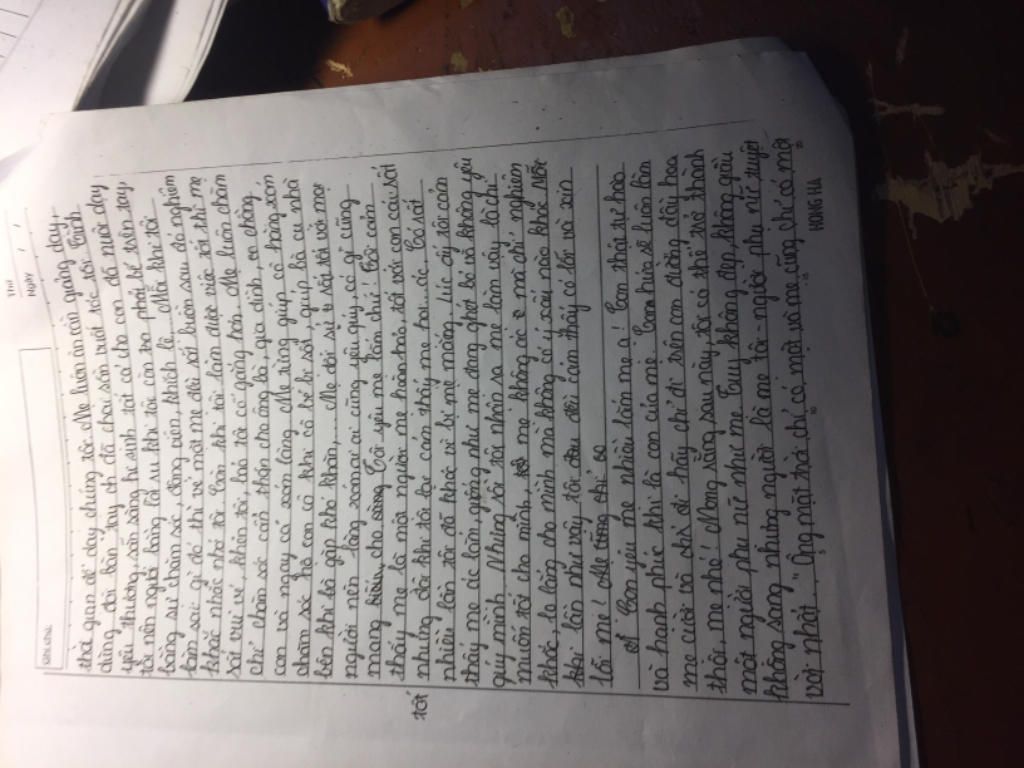 Thứ
Ngày / /
KIỂM TRA
thời gian để dạy chúng tôi. Mẹ luôn ân cần giảng dạy,
dùng đôi bàn tay đã chai sần vuốt tóc tôi. Tranh
yêu thương, sẵn sàng hi sinh tất cả cho con đã nuôi dạy
tôi nên người bằng lâu khi tôi còn ra phải bé trên tay
bằng sự chăm sóc, động viên, khích lệ... Mỗi khi tôi
làm sai gì đó thì vẻ mặt mẹ đôi sẽ buồn sau đó nghiêm
khắc nhắc nhở tôi. Còn khi tôi làm được việc tốt thì mẹ
sẽ vui vẻ, khen tôi, bảo tôi cố gắng hơn. Mẹ luôn chăm
chỉ chăm sóc cẩn thận cho ông bà, gia đình, em chẳng
con và ngay cả xóm làng. Mẹ từng giúp cô hàng xóm
chăm sóc trẻ con cô khi cô bé bị sốt, giúp bà cụ nhà
bên khi bà gặp khó khăn,... Mẹ đối sự tử tế rất tốt với mọi
người nên làng xóm ai ai cũng yêu quý, có gì cũng
mang biếu, cho. Tôi yêu mẹ lắm chứ! Tôi cảm
thấy mẹ là một người mẹ hoàn hảo, tốt với con cái
tốt
nhưng đôi khi tôi lại cảm thấy mẹ hơi... ác. Có rất
nhiều lần tôi đã khóc vì bị mẹ mắng. Lúc ấy tôi cảm
thấy mẹ ác lắm, giống như mẹ đang ghét bỏ và không yêu
quý mình. Nhưng rồi tôi nhận ra mẹ làm vậy là chỉ
muốn tốt cho mình, mẹ không ác mà chỉ nghiêm
khắc, lo lắng cho mình mà không có ý xấu nào khác. Mỗi
khi lần như vậy, tôi đều cảm thấy có lỗi và xin
lỗi mẹ!
Con yêu mẹ nhiều lắm mẹ ạ! Con thật tự hào
và hạnh phúc khi là con của mẹ. Con hứa sẽ luôn làm
mẹ cười và chỉ đi hãy chỉ đi trên con đường đầy hoa
thôi, mẹ nhé! Mong rằng sau này, tôi có thể trở thành
một người phụ nữ như mẹ. Tuy không đẹp, không giàu
không sang nhưng người là mẹ tôi - người phụ nữ tuyệt
vời nhất. "Ông mặt trời chỉ có một và mẹ cũng chỉ có một
5 10 15 20
HONG HA